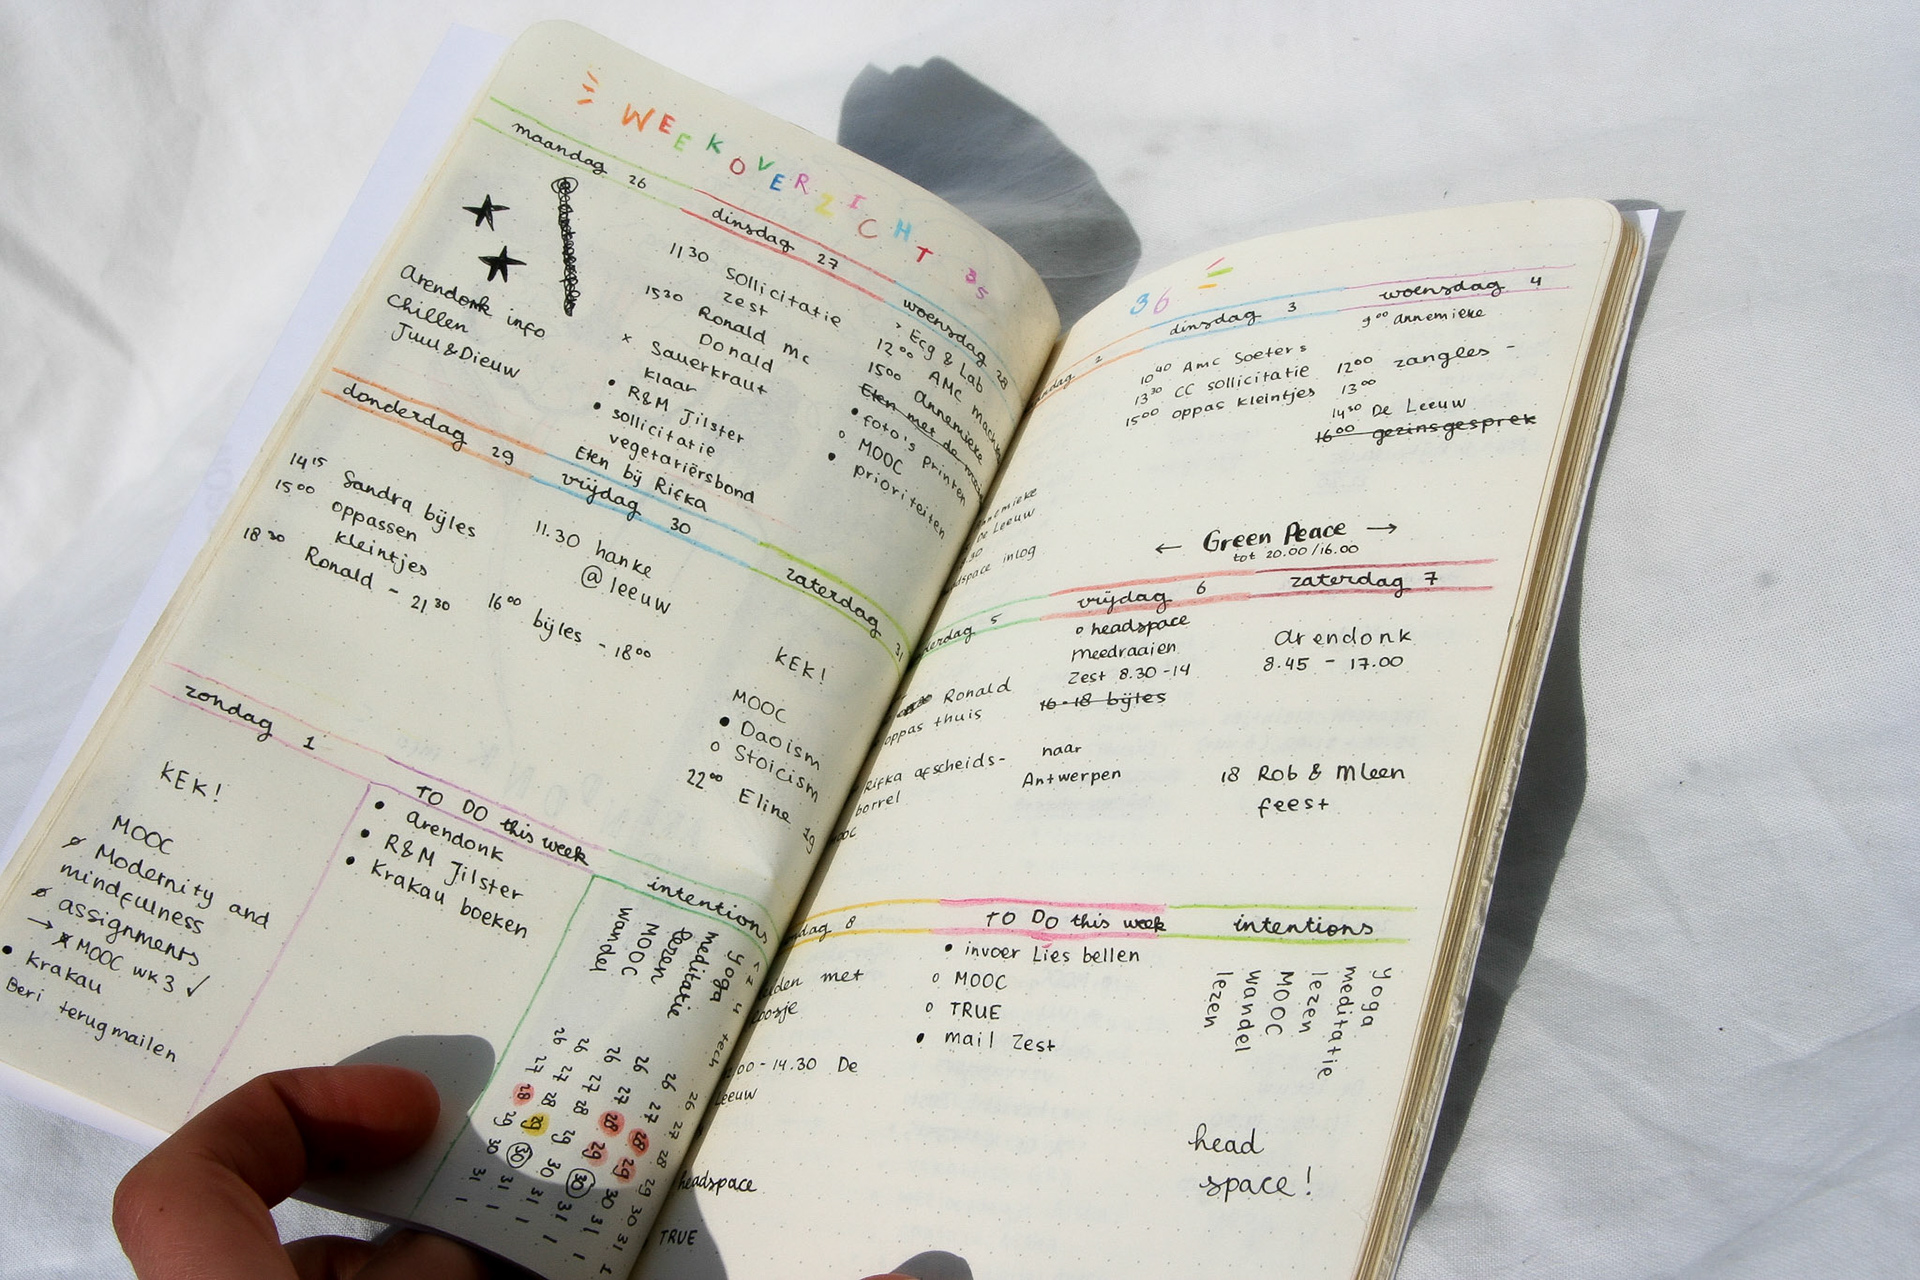 WEEKOVERZICHT 35
maandag 26
arendonk info
chillen
Juul & Dieuw
dinsdag 27
11 30 sollicitatie
zest
15 30 Ronald Mc
Donald
x Sauerkraut
klaar
• R&M Jilster
• sollicitatie
vegetariërsbond
Eten bij Rifka
woensdag 28
Ecg & Lab
12 00 AMC
15 00 annemieke
Eten met de
• foto's printen
o MOOC
• prioriteiten
donderdag 29
14 15 Sandra bijles
15 00 oppassen
kleintjes
18 30 Ronald - 21 30
vrijdag 30
11.30 hanke
@ leeuw
16 00 bijles - 18 00
zaterdag 31
KEK!
MOOC
• Daoism
o Stoicism
22 00 Eline
zondag 1
KEK!
MOOC
Modernity and
mindfulness
assignments
→ MOOC wk 3 ✓
• Krakau
Beri terugmailen
TO DO this week
• arendonk
• R&M Jilster
• Krakau boeken
intentions
yoga
meditatie
lezen
MOOC
wandel
26 27 28 29 30 31 1
26 27 28 29 30 31 1
26 27 28 29 30 31 1
26 27 28 29 30 31 1
26 27 28 29 30 31 1
36
2
De Leeuw
inlog
dinsdag 3
10 40 Amc Soeters
13 30 CC sollicitatie
15 00 oppas kleintjes
woensdag 4
9 00 annemieke
12 00 zangles -
13 00
14 30 De Leeuw
16 00 gezinsgesprek
← Green Peace →
tot 20.00/16.00
5
Ronald
oppas thuis
Rifka afscheids-
borrel
vrijdag 6
o headspace
meedraaien
Zest 8.30-14
16-18 bijles
naar
Antwerpen
zaterdag 7
arendonk
8.45 - 17.00
18 Rob & Mleen
feest
8
met
14.30 De
headspace
TRUE
TO DO this week
• invoer Lies bellen
o MOOC
o TRUE
• mail Zest
intentions
yoga
meditatie
lezen
MOOC
wandel
lezen
head
space!